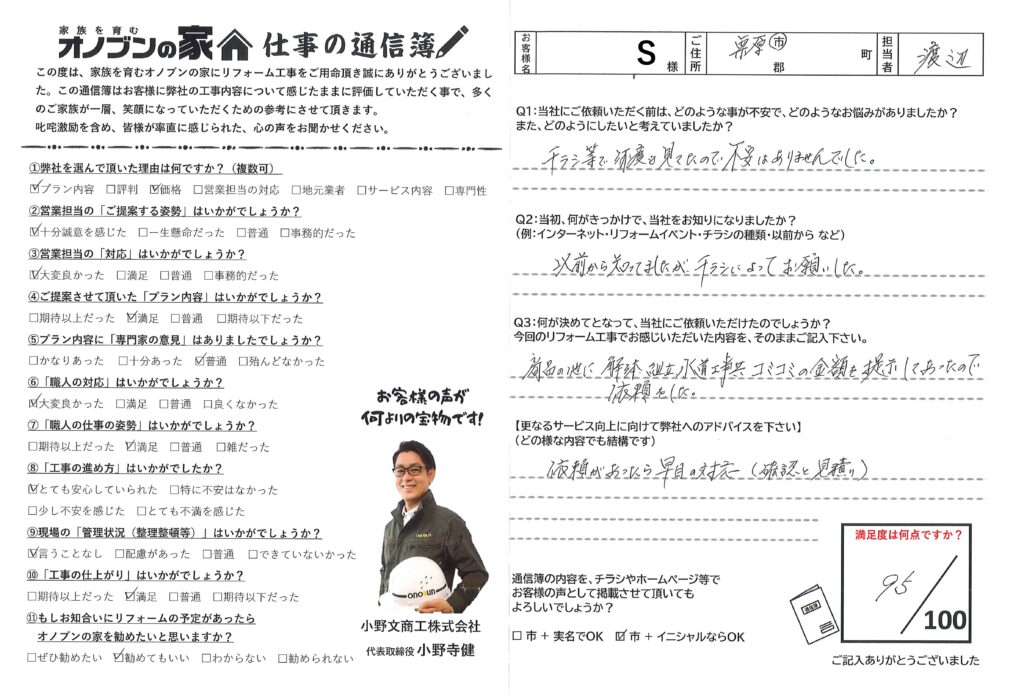 家族を育む
オノブンの家 仕事の通信簿
この度は、家族を育むオノブンの家にリフォーム工事をご用命頂き誠にありがとうございまし
た。この通信簿はお客様に弊社の工事内容について感じたままに評価していただく事で、多く
のご家族が一層、笑顔になっていただくための参考にさせて頂きます。
叱咤激励を含め、皆様が率直に感じられた、心の声をお聞かせください。
①弊社を選んで頂いた理由は何ですか？（複数可）
☑プラン内容 □評判 ☑価格 □営業担当の対応 □地元業者 □サービス内容 □専門性
②営業担当の「ご提案する姿勢」はいかがでしょうか？
☑十分誠意を感じた □一生懸命だった □普通 □事務的だった
③営業担当の「対応」はいかがでしょうか？
☑大変良かった □満足 □普通 □事務的だった
④ご提案させて頂いた「プラン内容」はいかがでしょうか？
□期待以上だった ☑満足 □普通 □期待以下だった
⑤プラン内容に「専門家の意見」はありましたでしょうか？
□かなりあった □十分あった ☑普通 □殆んどなかった
⑥「職人の対応」はいかがでしょうか？
☑大変良かった □満足 □普通 □良くなかった
⑦「職人の仕事の姿勢」はいかがでしょうか？
□期待以上だった ☑満足 □普通 □雑だった
⑧「工事の進め方」はいかがでしたか？
☑とても安心していられた □特に不安はなかった
□少し不安を感じた □とても不満を感じた
⑨現場の「管理状況（整理整頓等）」はいかがでしょうか？
☑言うことなし □配慮があった □普通 □できていないかった
⑩「工事の仕上がり」はいかがでしょうか？
□期待以上だった ☑満足 □普通 □期待以下だった
⑪もしお知合いにリフォームの予定があったら
オノブンの家を勧めたいと思いますか？
□ぜひ勧めたい ☑勧めてもいい □わからない □勧められない
お客様の声が
何よりの宝物です!
onobun
小野文商工株式会社
代表取締役 小野寺健
お客様名 S 様 ご住所 栗原 市 郡 町 担当者 渡辺
Q1:当社にご依頼いただく前は、どのような事が不安で、どのようなお悩みがありましたか？
また、どのようにしたいと考えていましたか？
チラシ等で何度も見てたので不安はありませんでした。
Q2:当初、何がきっかけで、当社をお知りになりましたか？
(例:インターネット・リフォームイベント・チラシの種類・以前から など)
以前から知ってましたが、チラシによってお願いした。
Q3:何が決めてとなって、当社にご依頼いただけたのでしょうか？
今回のリフォーム工事でお感じいただいた内容を、そのままご記入下さい。
商品の他に 解体 組立 水道工事共 コミコミの金額を提示してあったので
依頼をした。
【更なるサービス向上に向けて弊社へのアドバイスを下さい】
(どの様な内容でも結構です)
依頼があったら早目の対応（確認と見積り）
満足度は何点ですか？
95
100
通信簿の内容を、チラシやホームページ等で
お客様の声として掲載させて頂いても
よろしいでしょうか？
□ 市 + 実名でOK ☑ 市 + イニシャルならOK
通信簿
ご記入ありがとうございました